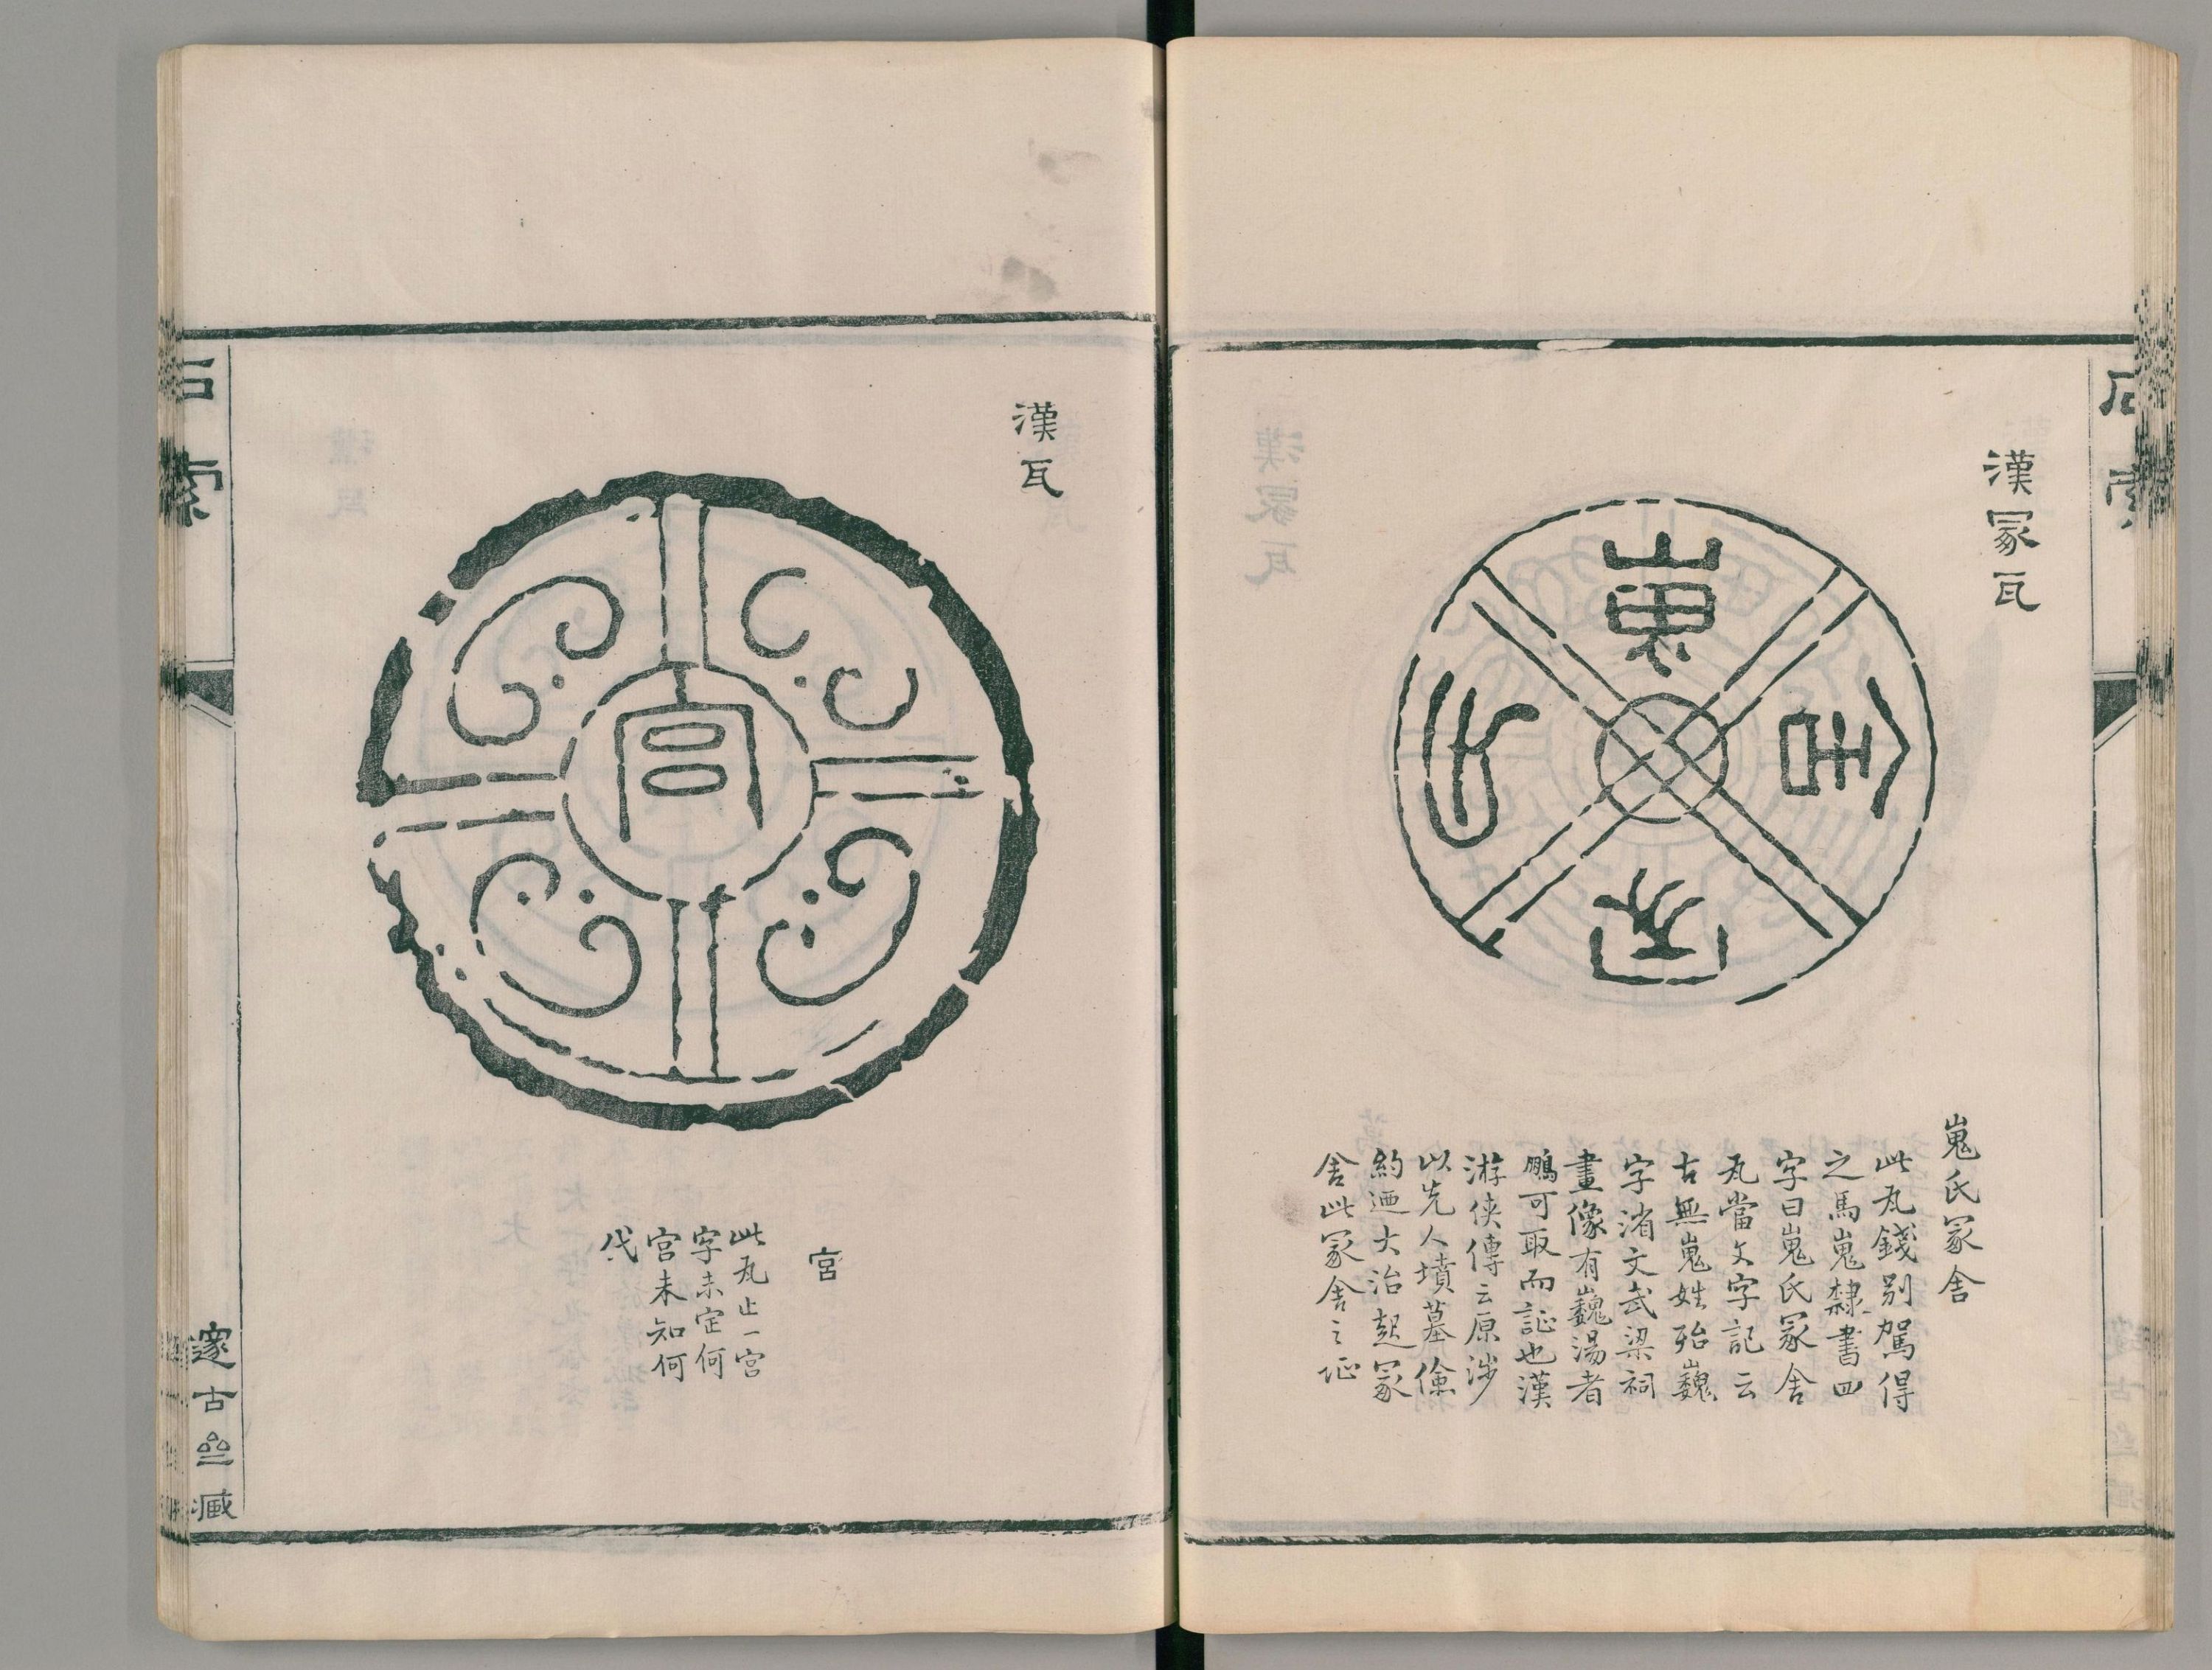 石索
漢冢瓦
嵬
氏
冢
舍
嵬氏冢舍
此瓦錢別駕得
之馬嵬隸書四
字曰嵬氏冢舍
瓦當文字記云
古無嵬姓殆巍
字渻文武梁祠
畫像有巍湯者
鵬可取而証也漢
游俠傳云原涉
以先人墳墓儉
約迺大治起冢
舍此冢舍之証
漢瓦
宮
宮
此瓦止一宮
字未定何
宮未知何
代
石索
邃古
藏